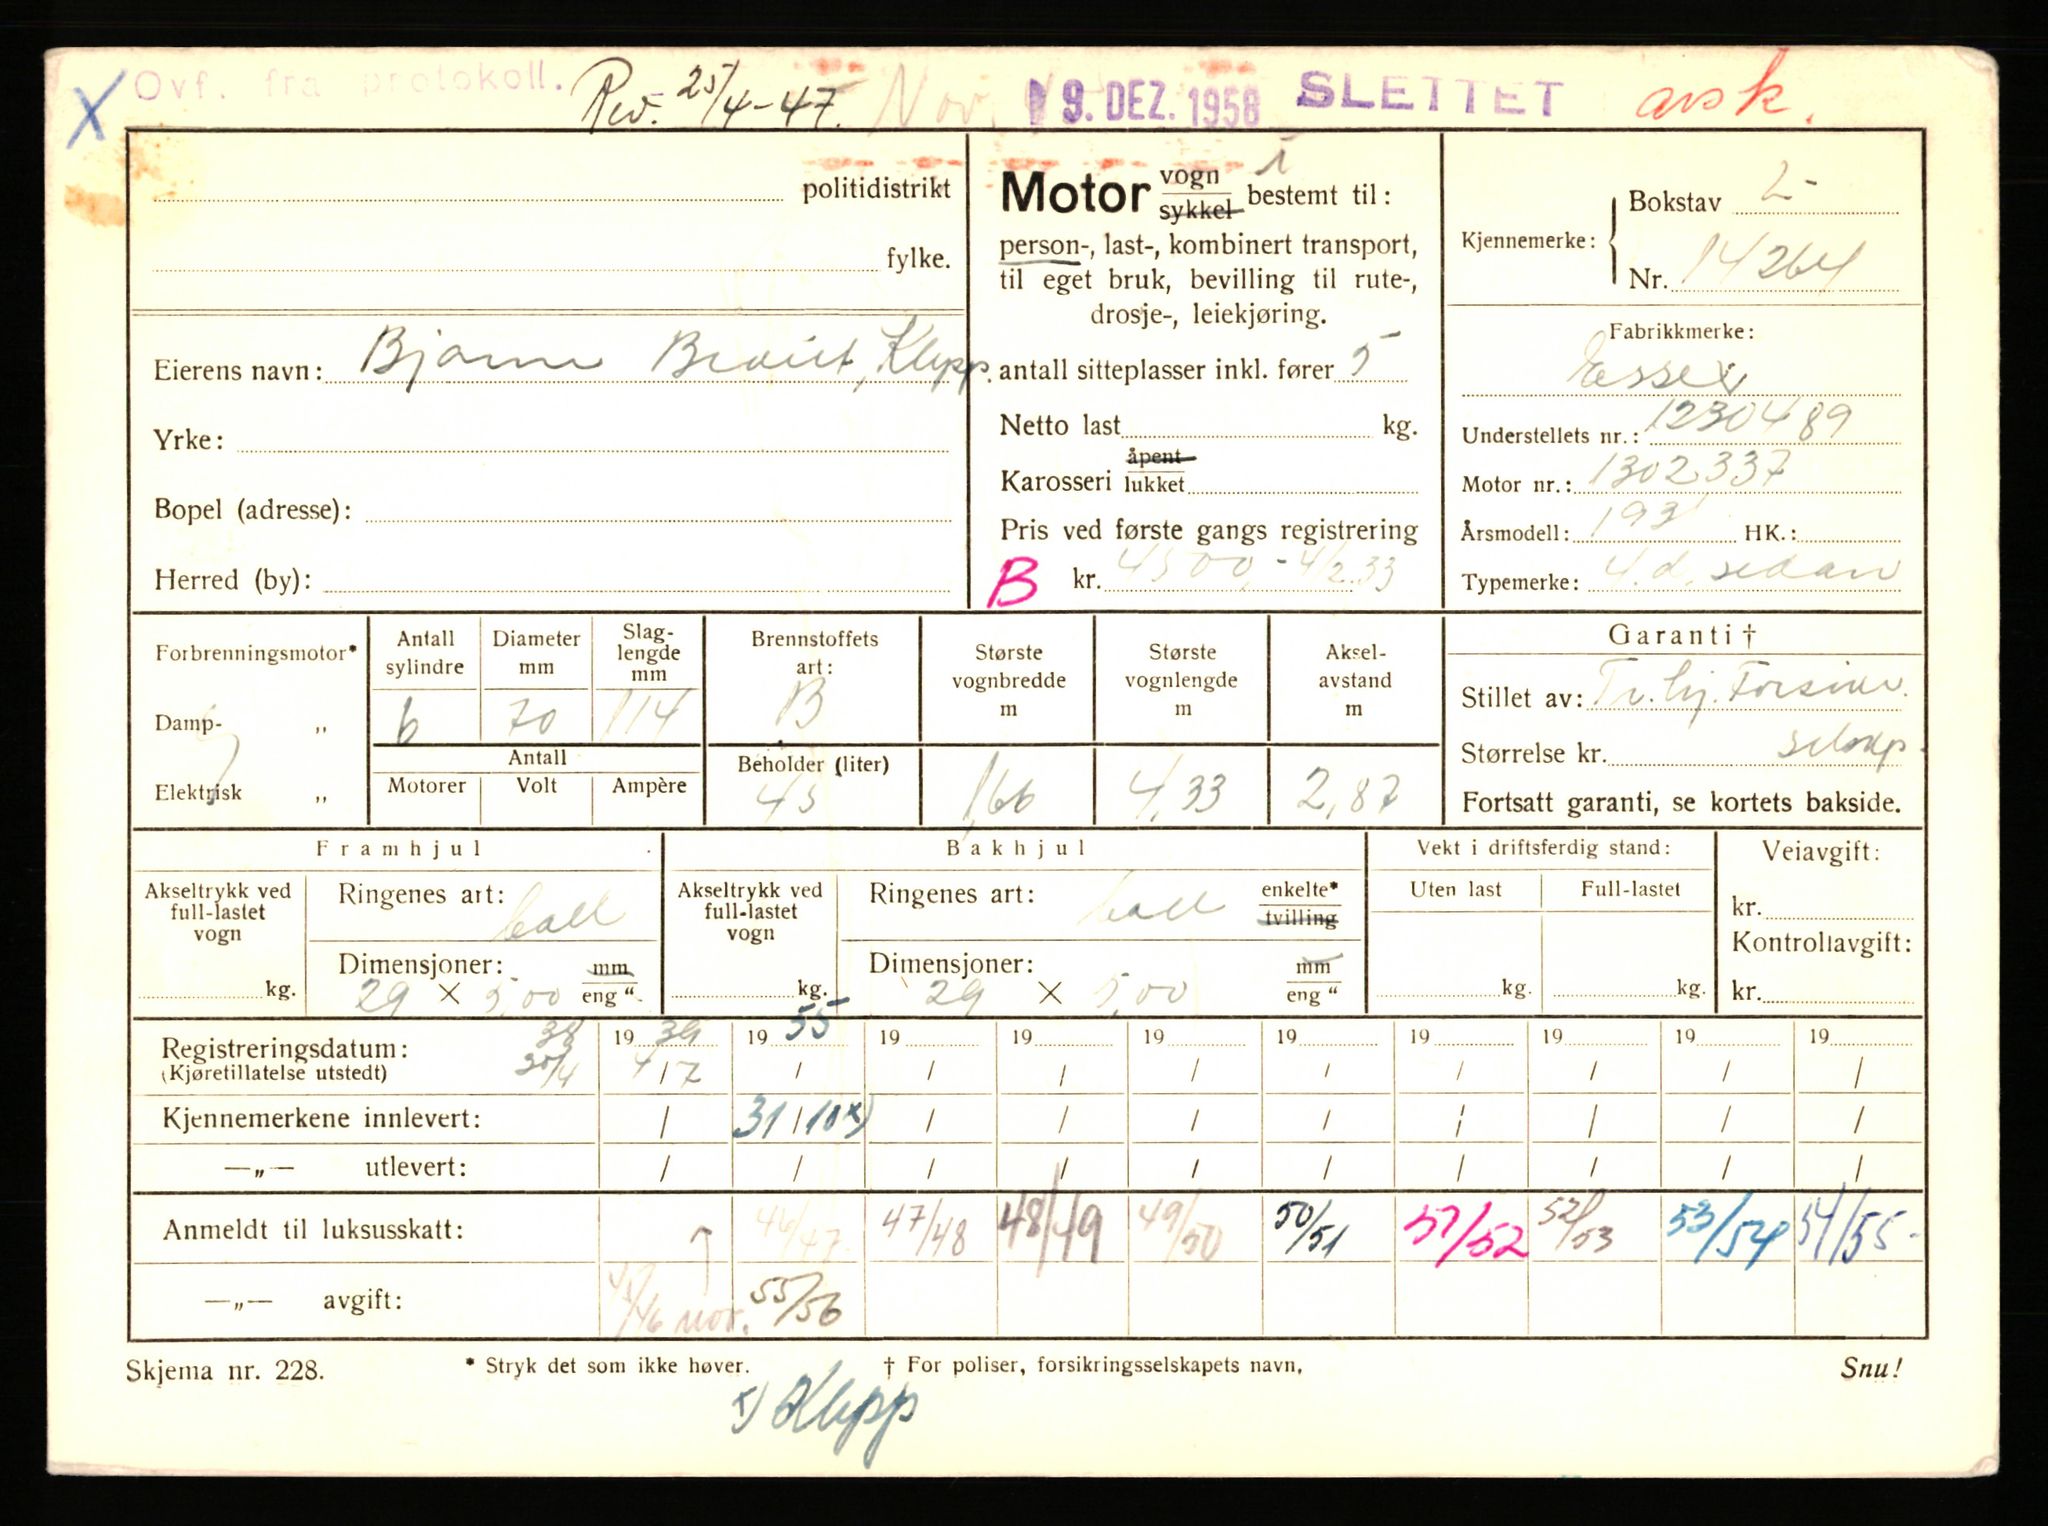 X Ovf. fra protokoll. Rev. 25/4-47. Nov. 19. DEZ. 1958 SLETTET avsk.
politidistrikt
fylke.
Eierens navn: Bjarne Braut, Klepp.
Yrke:
Bopel (adresse):
Herred (by):
Motor vogn sykkel bestemt til:
person-, last-, kombinert transport,
til eget bruk, bevilling til rute-,
drosje-, leiekjøring.
antall sitteplasser inkl. fører 5
Netto last kg.
Karosseri åpent lukket
Pris ved første gangs registrering
B kr. 4500,- 4/2.33
Kjennemerke: Bokstav L-
Nr. 14264
Fabrikkmerke:
Essex
Understellets nr.: 1230489
Motor nr.: 1302337
Årsmodell: 1931 HK.:
Typemerke: 4.d. sedan
Forbrenningsmotor*
Damp- „
Elektrisk „
Antall sylindre 6
Diameter mm 70
Slag-lengde mm 114
Antall
Motorer Volt Ampère
Brennstoffets art: B
Beholder (liter) 45
Største vognbredde m 1,66
Største vognlengde m 4,33
Aksel-avstand m 2,87
Garanti †
Stillet av: Tr.hj. Forsikr.
Størrelse kr. selskap.
Fortsatt garanti, se kortets bakside.
Framhjul
Akseltrykk ved full-lastet vogn kg.
Ringenes art: ball
Dimensjoner: 29 x 5,00 mm eng "
Bakhjul
Akseltrykk ved full-lastet vogn kg.
Ringenes art: ball enkelte* tvilling
Dimensjoner: 29 x 5,00 mm eng "
Vekt i driftsferdig stand:
Uten last Full-lastet
kg. kg.
Veiavgift:
kr.
Kontrollavgift:
kr.
Registreringsdatum: 38 19 39 19 55 19 19 19 19 19 19 19 19
(Kjøretillatelse utstedt) 30/4 4/7 / / / / / / / / /
Kjennemerkene innlevert: / 31/10 x) / / / / / / / /
—„— utlevert: / / / / / / / / / /
Anmeldt til luksusskatt: 46/47 47/48 48/49 49/50 50/51 51/52 52/53 53/54 54/55-
—„— avgift: 45/46 nov. 55/56
Skjema nr. 228. * Stryk det som ikke høver. † For poliser, forsikringsselskapets navn, Snu!
x) Klepp